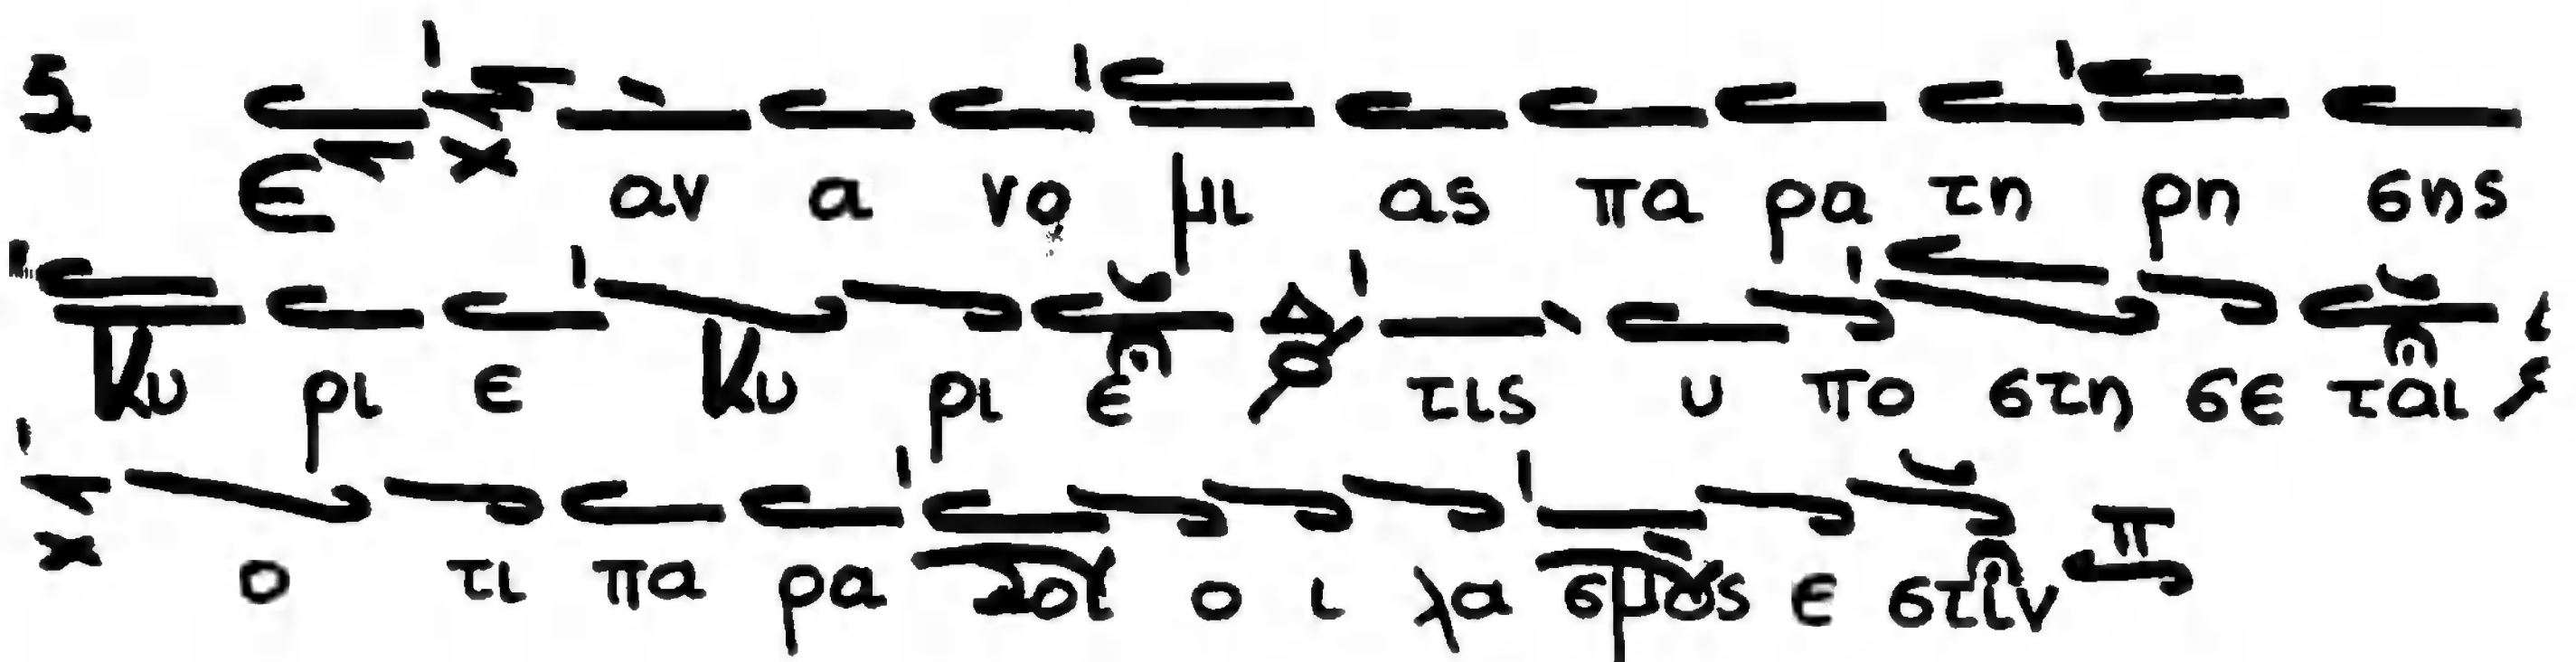 5 Ε αν α νο μι ας πα ρα τη ρη σης
Κυ ρι ε Κυ ρι ε Δ τις υ πο στη σε ται
ο τι πα ρα σοι ο ι λα σμος ε στιν π